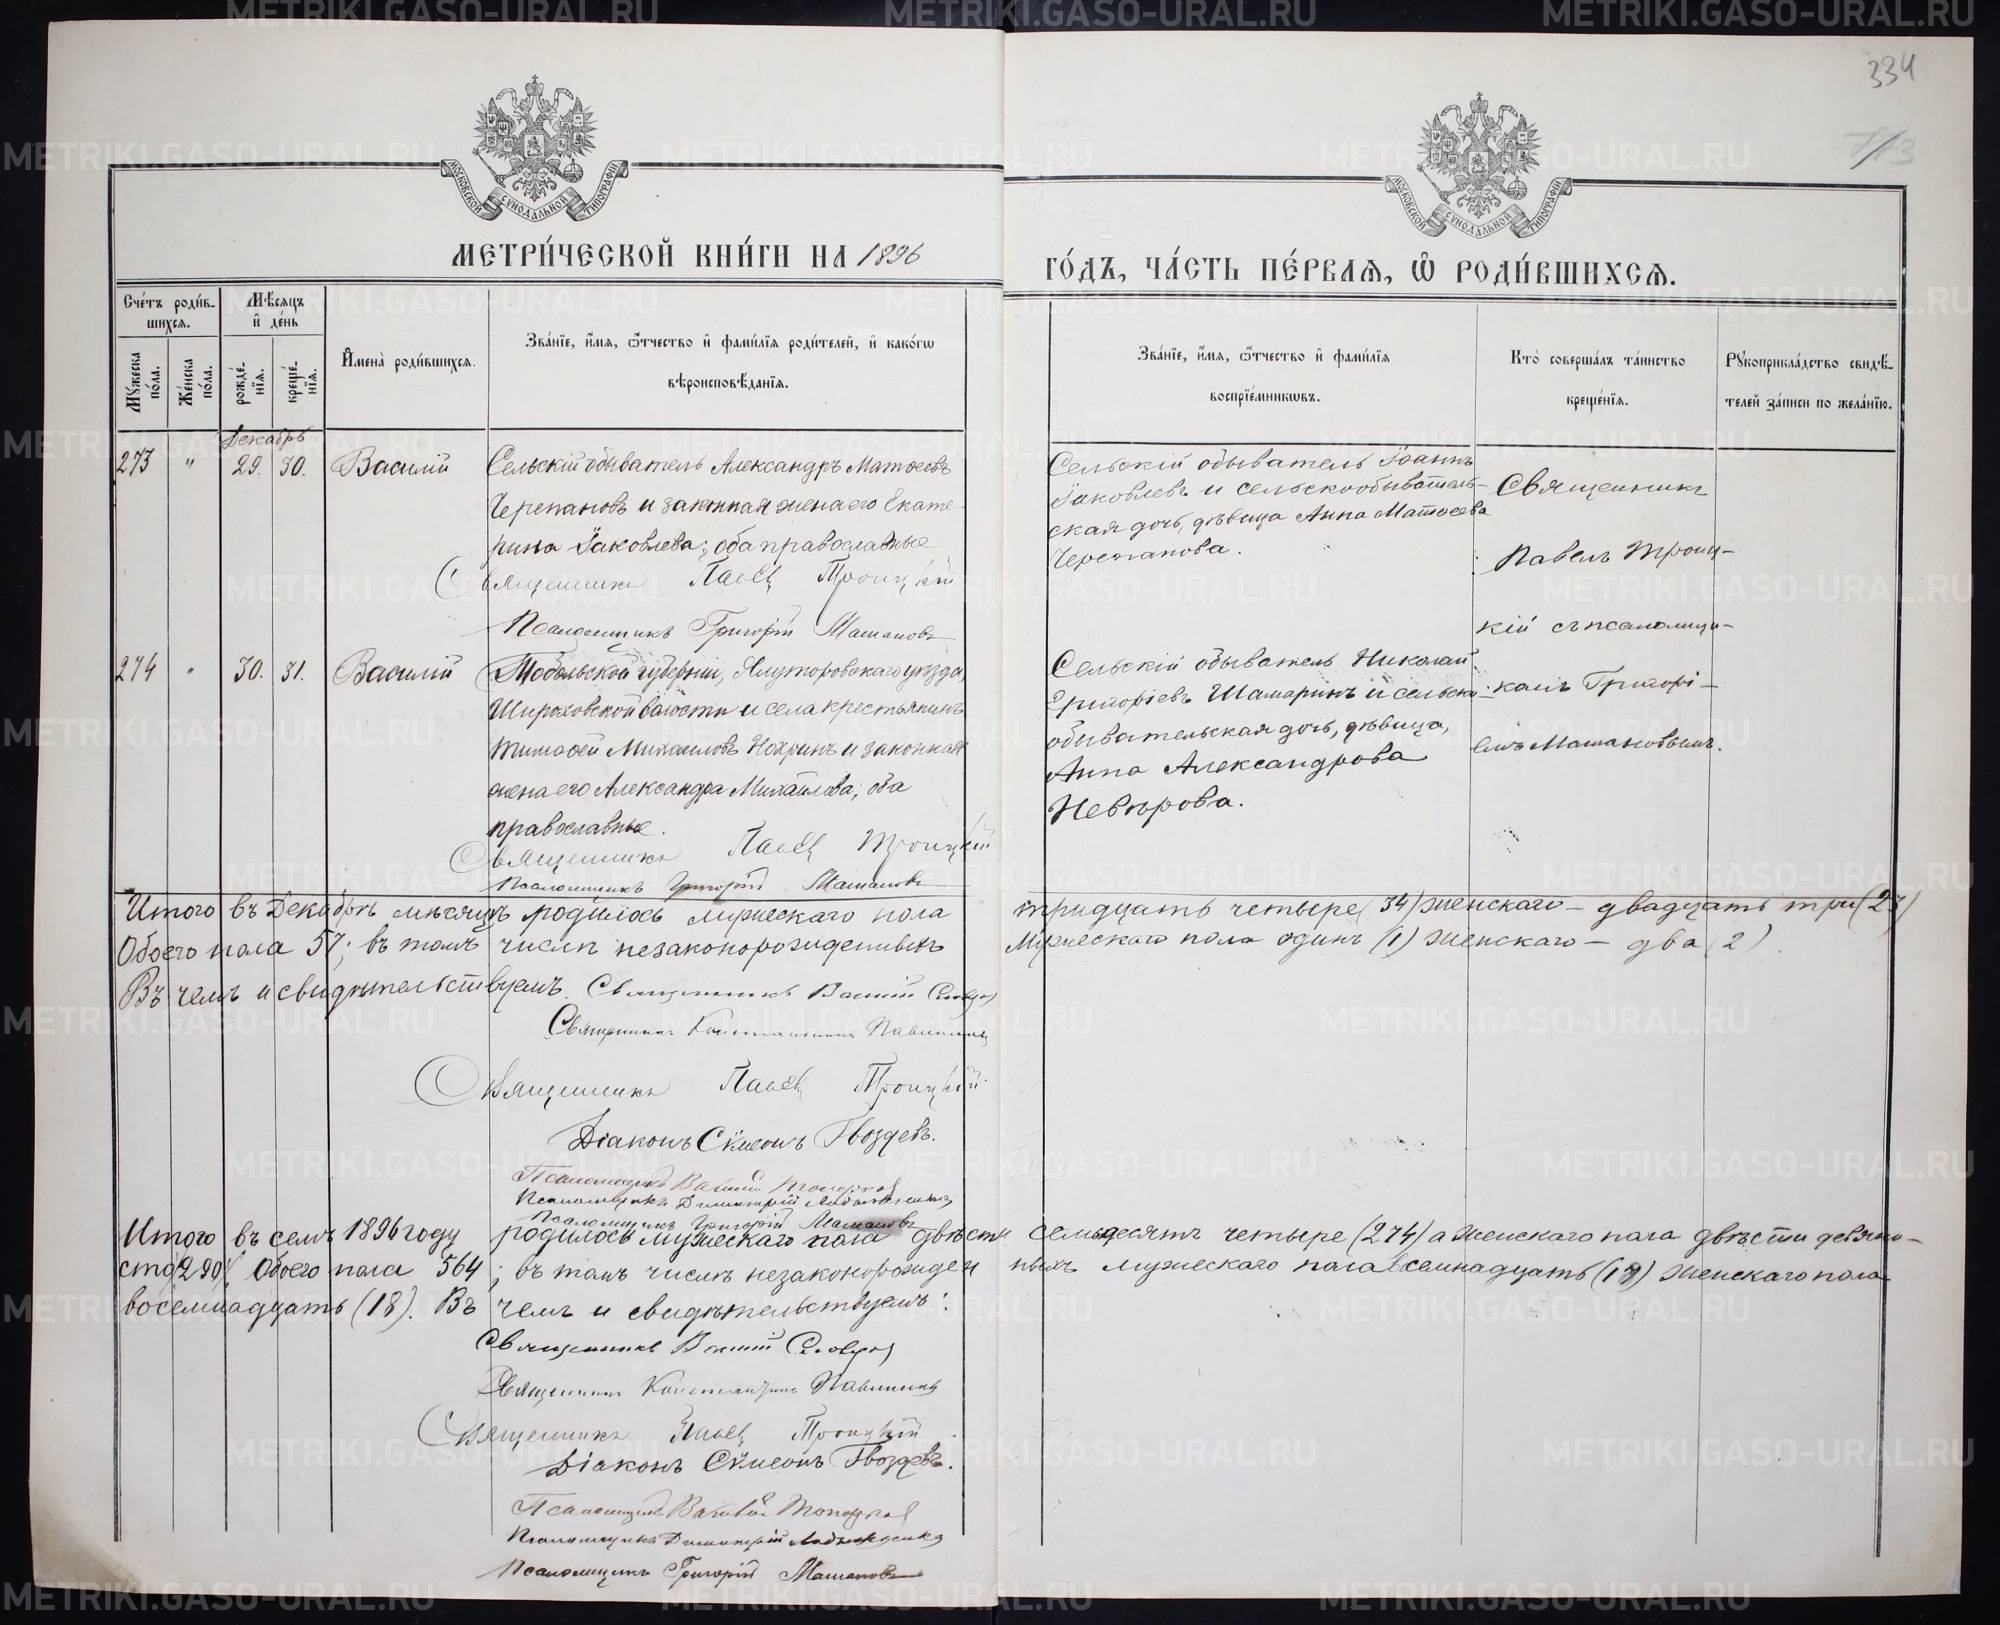 334
МОСКОВСКОЙ СѴНОДАЛЬНОЙ ТИПОГРАФІИ
МОСКОВСКОЙ СѴНОДАЛЬНОЙ ТИПОГРАФІИ
МЕТРИ́ЧЕСКОЙ КНИ́ГИ НА 1896
ГО́ДЪ, ЧА́СТЬ ПЕ́РВАЯ, Ѡ РОДИ́ВШИХСЯ.
Сче́тъ роди́в-
шихся.
Мѣ́сяцъ
и де́нь
Мꙋ́жеска
по́ла.
Же́нска
по́ла.
рожде́-
нїя.
креще́-
нїя.
И҆мена̀ роди́вшихся.
Зва́нїе, и҆́мя, ѻ҆́тчество и҆ фами́лїя роди́телей, и҆ како́гѡ
вѣроисповѣ́данїя.
Зва́нїе, и҆́мя, ѻ҆́тчество и҆ фами́лїя
воспрїе́мникѡвъ.
Кто̀ соверша́лъ та́инство
креще́нїя.
Рꙋкоприкла́дство свидѣ́-
телей за́писи по жела́нїю.
Декабрь
273 " 29. 30. Василій
Сельскій обыватель Александръ Матѳеевъ
Черепановъ и законная жена его Екате-
рина Іаковлева; оба православные
Священникъ Павелъ Троицкій
Псаломщикъ Григорій Машановъ
Сельскій обыватель Іоаннъ
Іаковлевъ и сельскообыватель-
ская дочь, дѣвица Анна Матѳеева
Черепанова.
Священникъ
Павелъ Троиц-
кій съ псаломщи-
комъ Григорі-
емъ Машановымъ.
274 " 30. 31. Василій
Тобольской губерніи, Ялуторовскаго уѣзда,
Шороховской волости и села крестьянинъ
Тимоѳей Михаиловъ Нохринъ и законная
жена его Александра Михаилова; оба
православные.
Священникъ Павелъ Троицкій
Псаломщикъ Григорій Машановъ
Сельскій обыватель Николай
Григоріевъ Шамаринъ и сельско-
обывательская дочь, дѣвица,
Анна Александрова
Невѣрова.
Итого въ Декабрѣ мѣсяцѣ родилось мужескаго пола тридцать четыре (34) женскаго – двадцать три (23)
Обоего пола 57; въ томъ числѣ незаконорожденныхъ Мужескаго пола одинъ (1) женскаго – два (2).
Въ чемъ и свидѣтельствуемъ. Священникъ Василій Словцовъ
Священникъ Константинъ
Священникъ Павелъ Троицкій.
Діаконъ Сѵмеонъ Гвоздевъ.
Псаломщикъ
Псаломщикъ Димитрій
Псаломщикъ Григорій Машановъ
Итого въ семъ 1896 году родилось мужескаго пола двѣсти семьдесятъ четыре (274) а женскаго пола двѣсти девяно-
сто (290). Обоего пола 564; въ томъ числѣ незаконорожден ныхъ мужескаго пола семнадцать (17) женскаго пола
восемнадцать (18). Въ чемъ и свидѣтельствуемъ:
Священникъ Василій Словцовъ
Священникъ Константинъ
Священникъ Павелъ Троицкій
Діаконъ Сѵмеонъ Гвоздевъ.
Псаломщикъ
Псаломщикъ Димитрій
Псаломщикъ Григорій Машановъ
METRIKI.GASO-URAL.RU